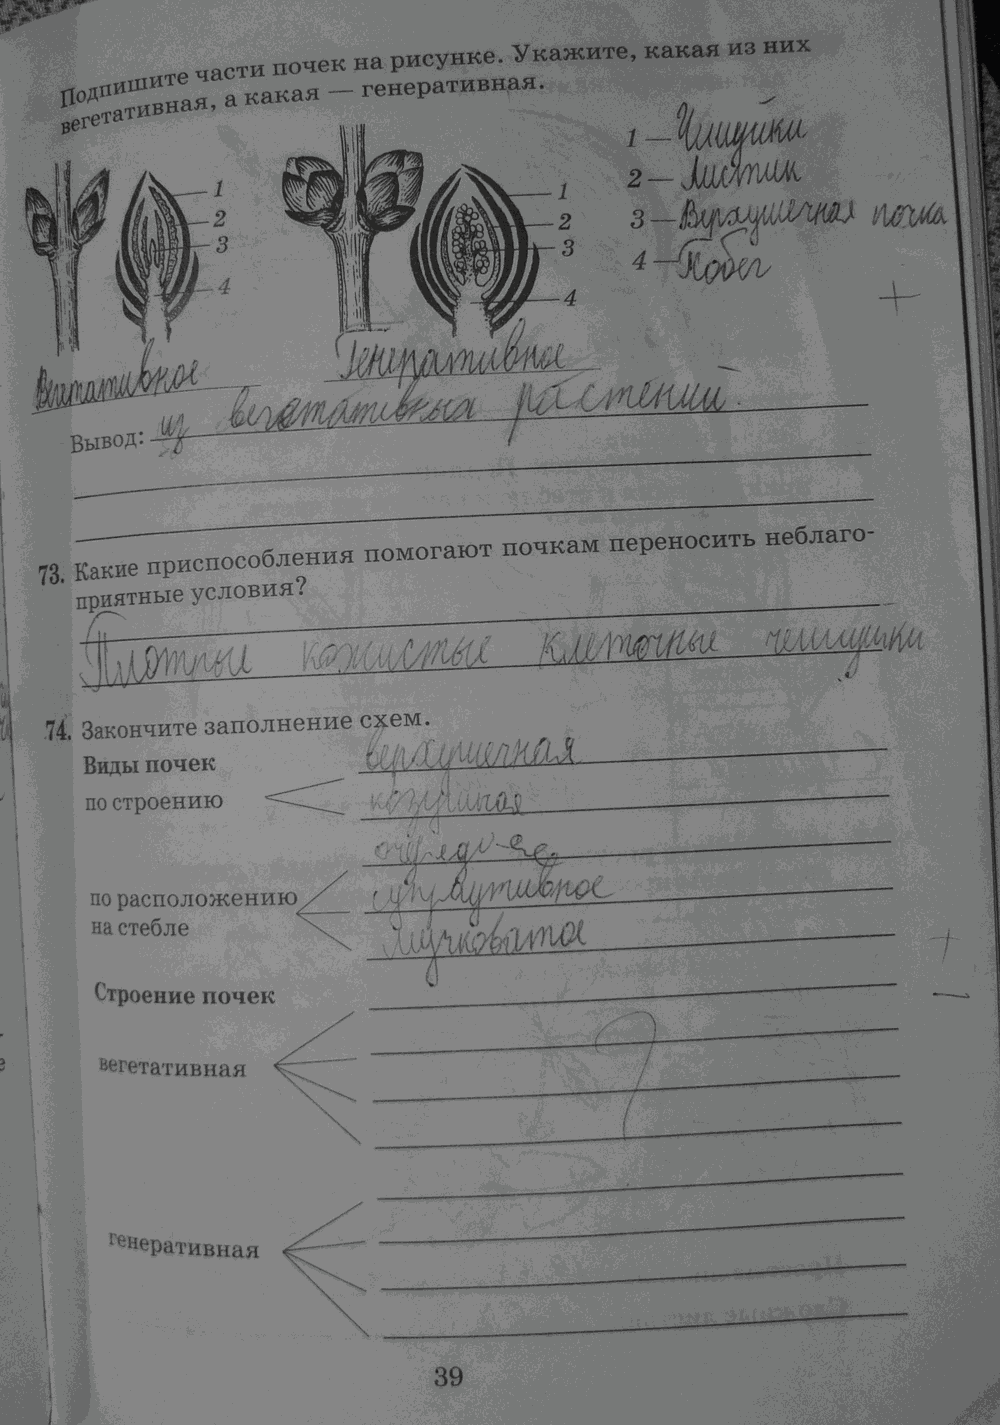 Подпишите части почек на рисунке. Укажите, какая из них
вегетативная, а какая — генеративная.
1 — Чешуйки
2 — Листик
3 — Верхушечная почка
4 — Побег
1
2
3
4
1
2
3
4
+
Вегетативное
Генеративное
Вывод: из вегетативных растений.
73. Какие приспособления помогают почкам переносить неблаго-
приятные условия?
Плотные кожистые клеточные чешуйки
74. Закончите заполнение схем.
Виды почек
верхушечная
по строению
по расположению
на стебле
мучковатое
+
Строение почек
—
?
вегетативная
генеративная
39